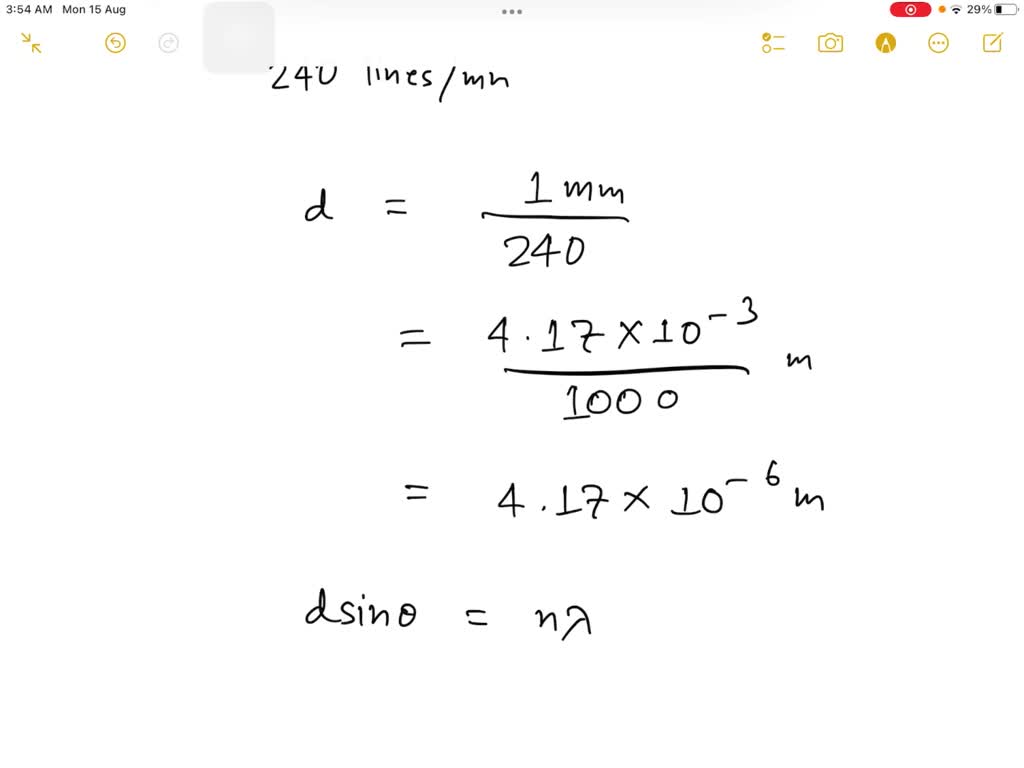 3:54 AM Mon 15 Aug
29%
240 lines/mm
d = 1 mm
240
= 4.17 × 10⁻³ m
1000
= 4.17 × 10⁻⁶ m
dsinθ = nλ